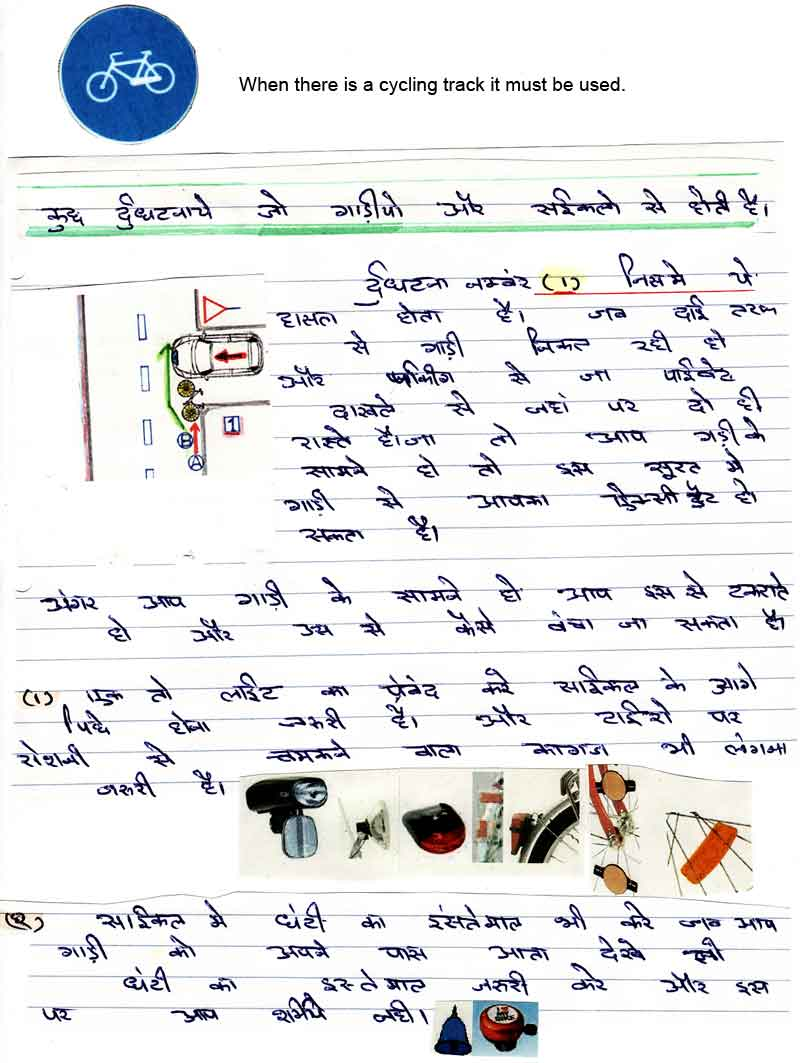 When there is a cycling track it must be used.
कुछ र्दुघटनाये जो गाड़ीयो और सईकलो से होती है।
र्दुघटना नम्बर (1) जिसमे ये
हासता होता है। जब दाई तरफ
से गाड़ी निकल रही हो
और पार्कीग से जा पाईवेट
दाखले से जहां पर दो ही
रास्ते है। जा तो आप गड़ी के
सामने हो तो इस सूरत मे
गाड़ी से आपका ऐकसीडैंट हो
सकता है।
1
B
A
अंगर आप गाड़ी के सामने हो आप इस से टकराते
हो और उस से कैसे बंचा जा सकता है।
(1) एक तो लाईट का प्रेबंद करे साईकल के आगे
पिछे होना जरुरी है। और टाईरो पर
रोशनी से चमकने वाला कागज भी लंगना
जरुरी है।
(2) साईकल मे घंटी का इंसतेमाल भी करे जब आप
गाड़ी को अपने पास आता देखे तो
घंटी का इस्तेमाल जरुरी करे और इस
पर आप शर्माये नही।